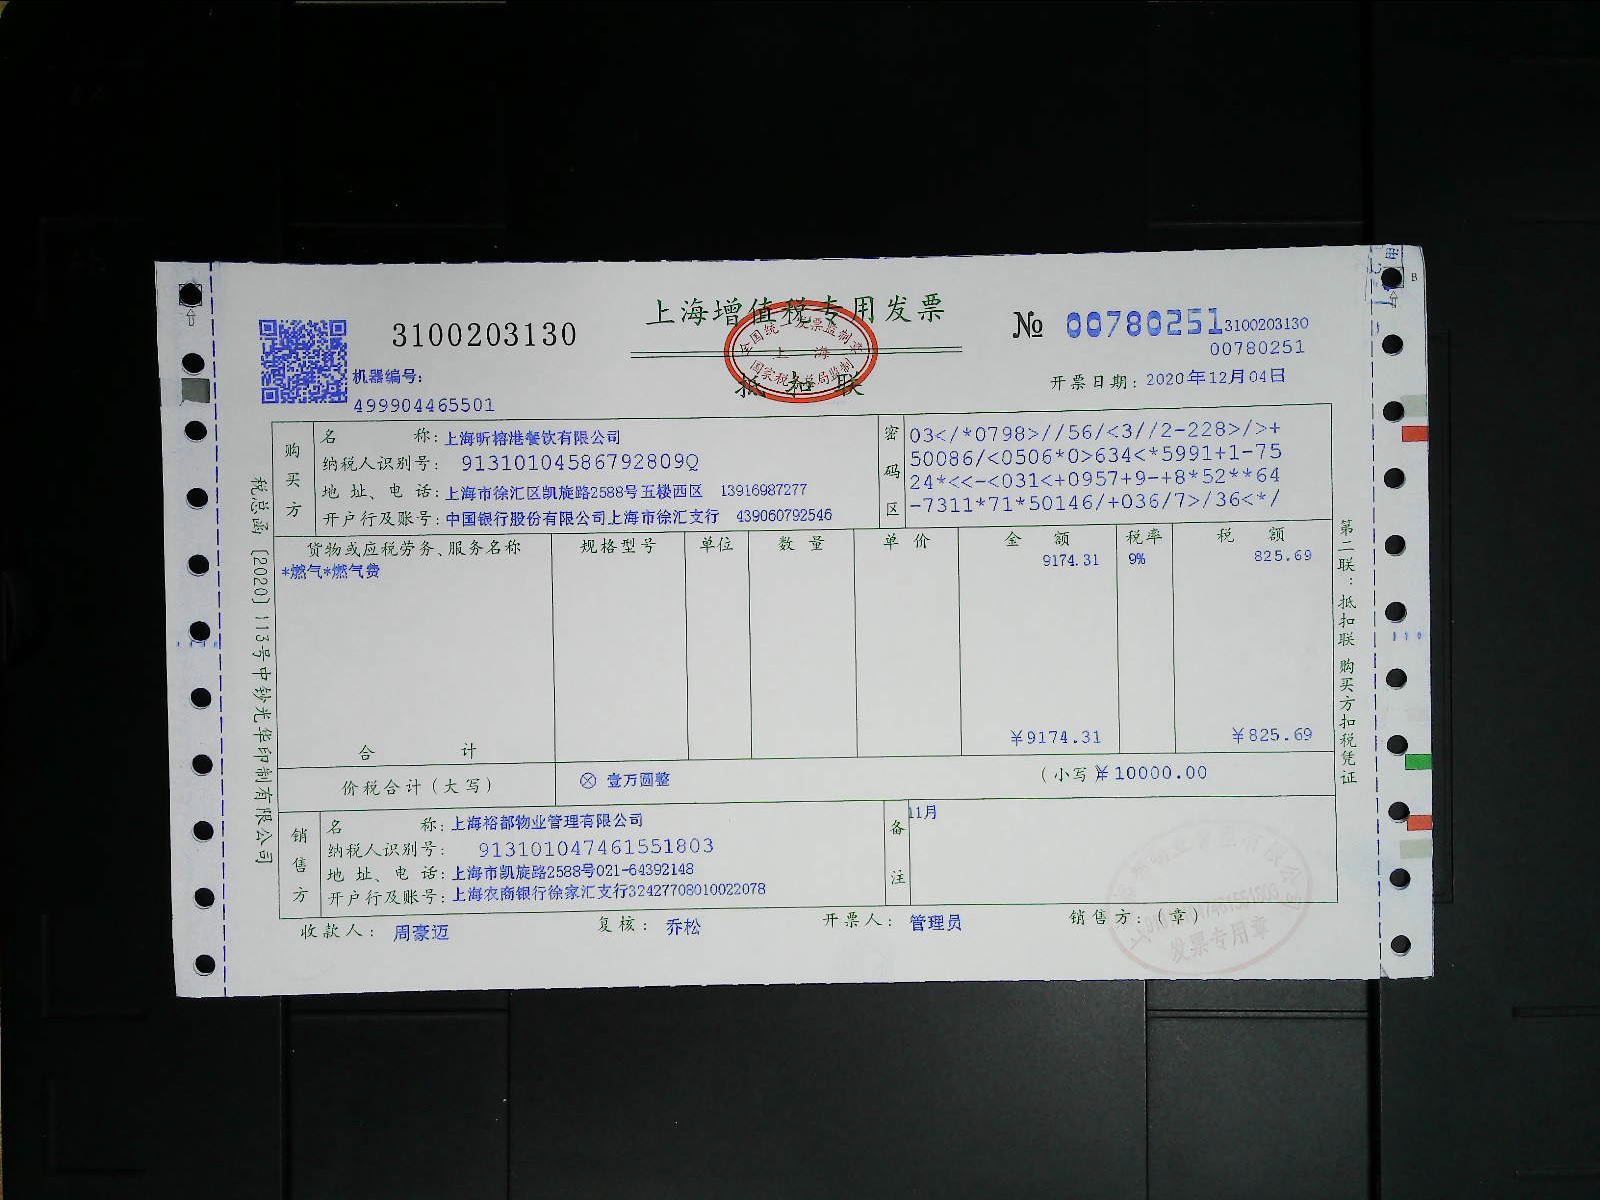 上海增值税专用发票
3100203130
№ 00780251
3100203130
00780251
全国统一发票监制章
上海
国家税务总局监制
抵扣联
机器编号:
499904465501
开票日期: 2020年12月04日
购买方
名称: 上海昕榕港餐饮有限公司
纳税人识别号: 91310104586792809Q
地址、电话: 上海市徐汇区凯旋路2588号五楼西区 13916987277
开户行及账号: 中国银行股份有限公司上海市徐汇支行 439060792546
密码区
03</*0798>//56/<3//2-228>/>+
50086/<0506*0>634<*5991+1-75
24*<<-<031<+0957+9-+8*52**64
-7311*71*50146/+036/7>/36<*/
货物或应税劳务、服务名称 规格型号 单位 数量 单价 金额 税率 税额
*燃气*燃气费 9174.31 9% 825.69
合计 ¥9174.31 ¥825.69
价税合计(大写) ⊗ 壹万圆整 (小写) ¥10000.00
销售方
名称: 上海裕都物业管理有限公司
纳税人识别号: 913101047461551803
地址、电话: 上海市凯旋路2588号021-64392148
开户行及账号: 上海农商银行徐家汇支行32427708010022078
备注
11月
收款人: 周豪迈 复核: 乔松 开票人: 管理员 销售方:(章)
发票专用章
税总函〔2020〕113号中钞光华印制有限公司
第二联:抵扣联 购买方扣税凭证
B